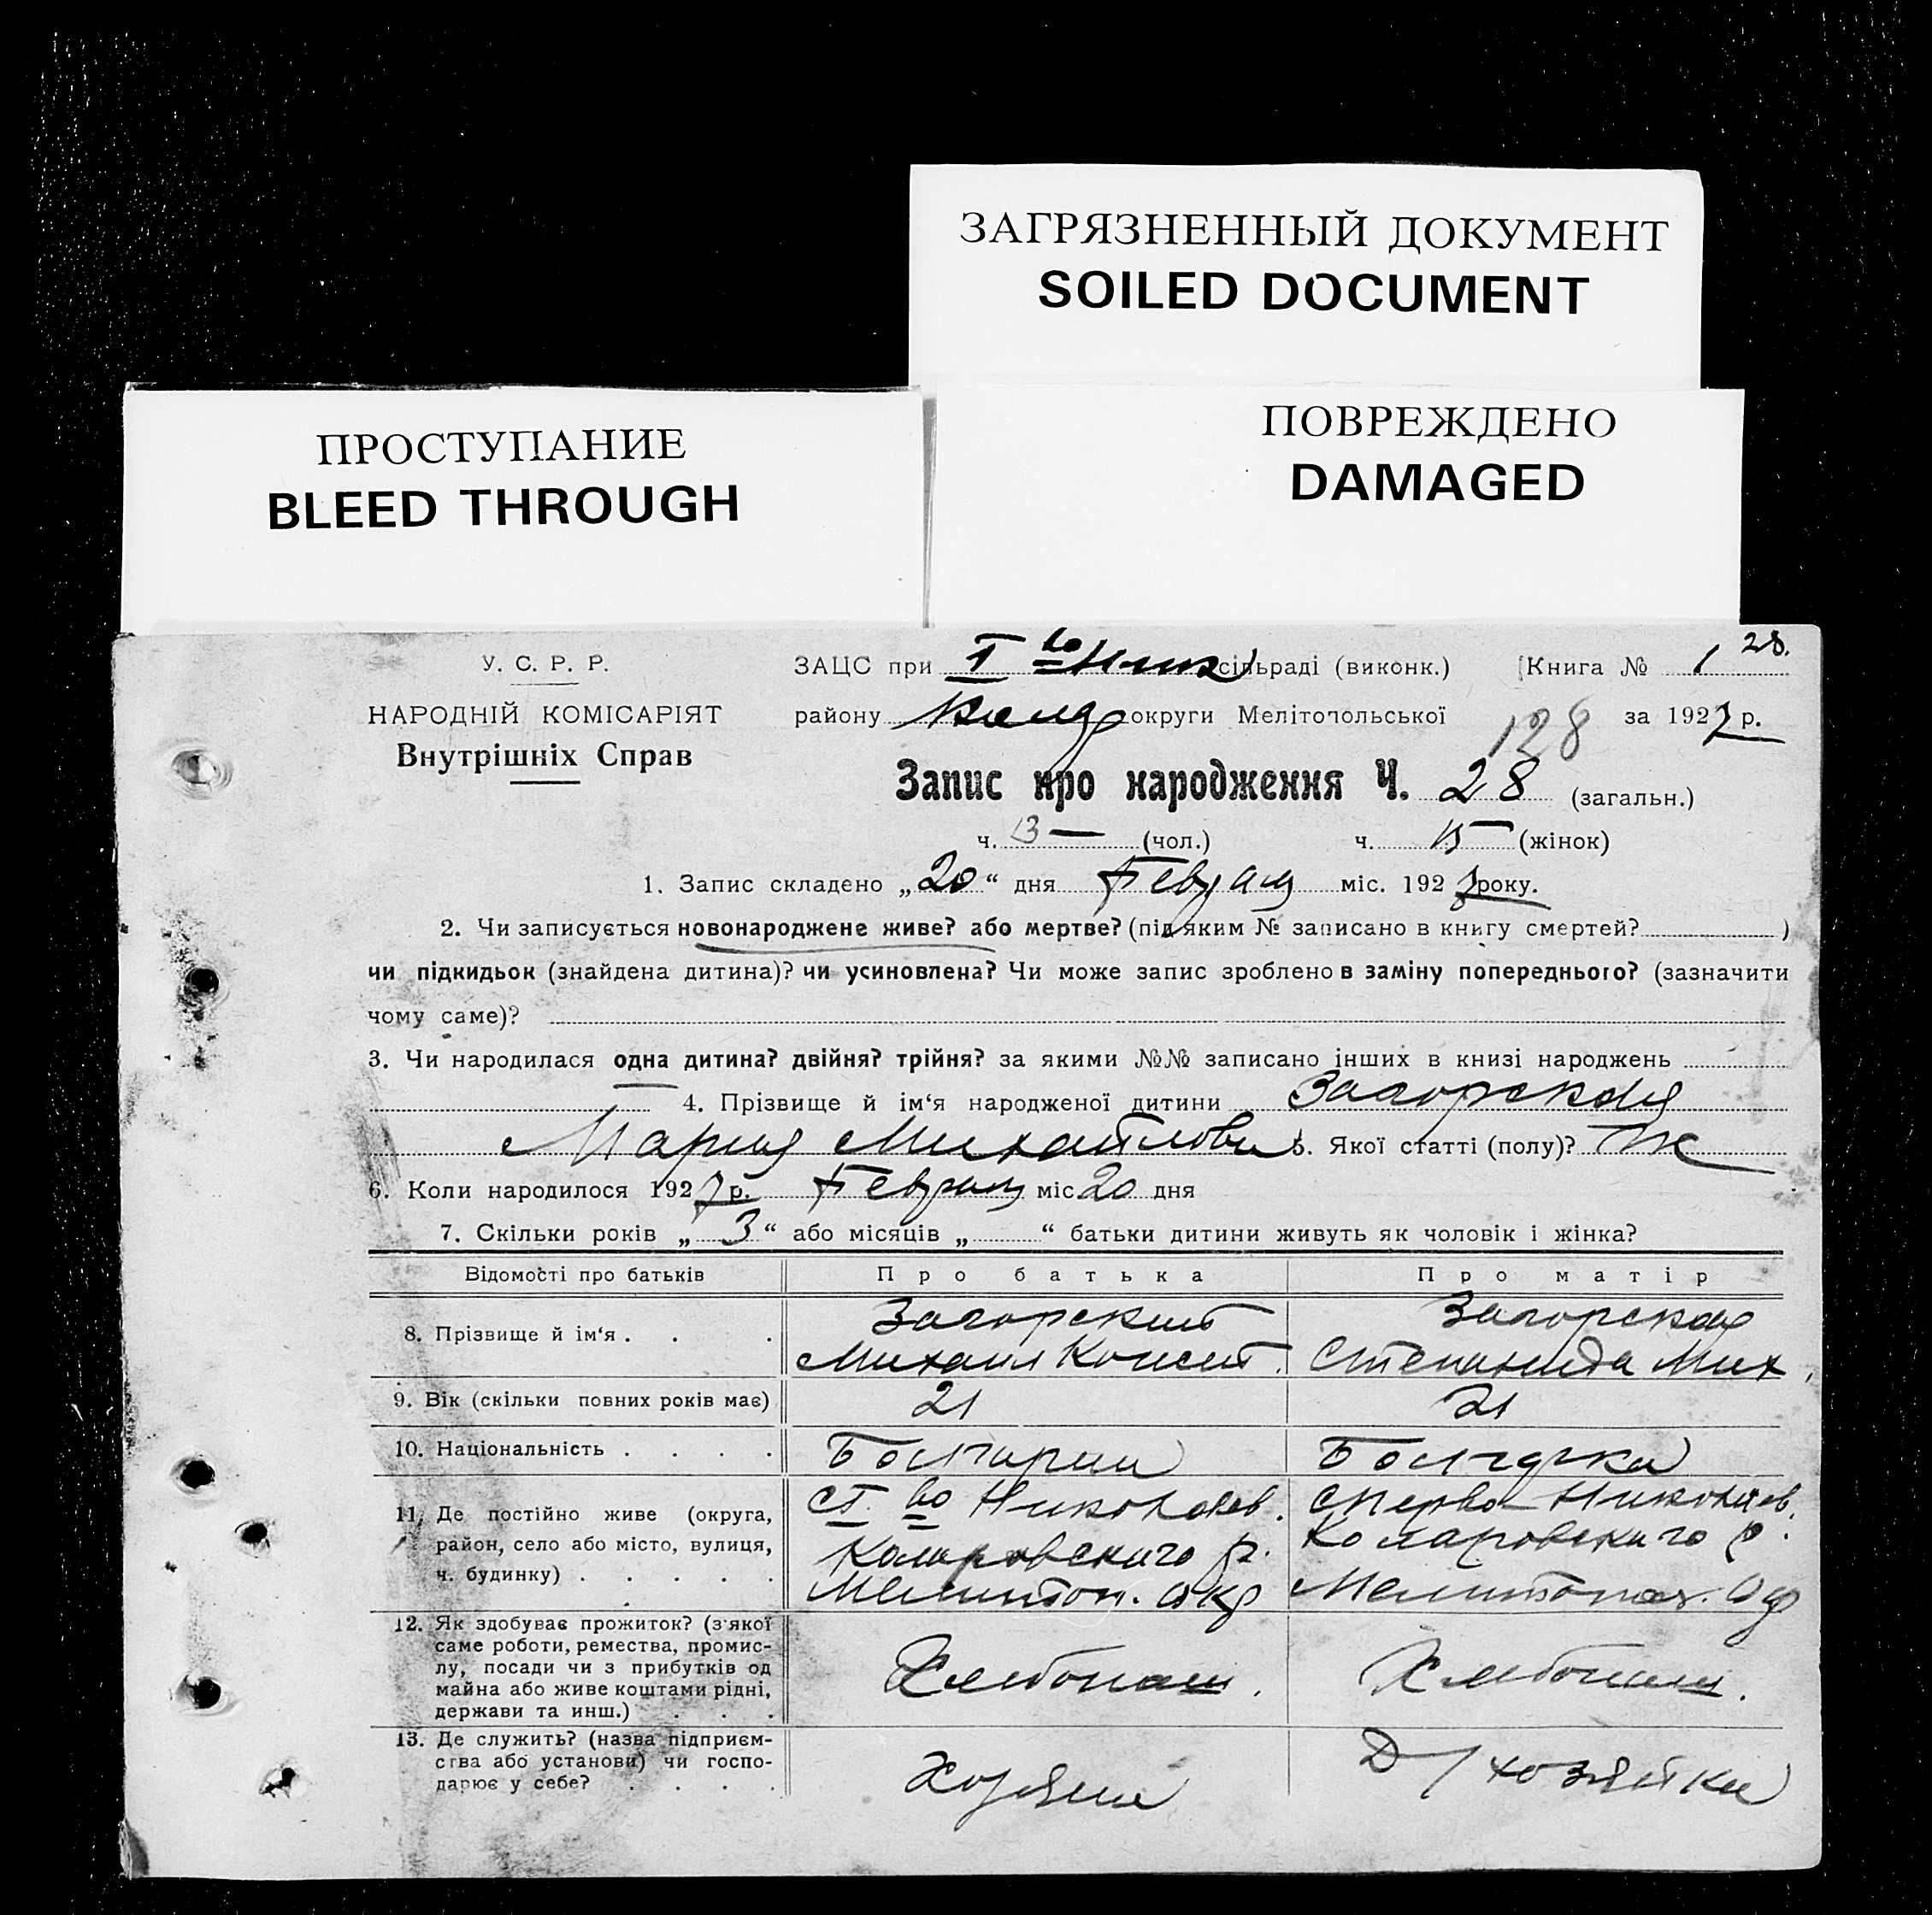 ЗАГРЯЗНЕННЫЙ ДОКУМЕНТ
SOILED DOCUMENT
ПРОСТУПАНИЕ
BLEED THROUGH
ПОВРЕЖДЕНО
DAMAGED
28.
У. С. Р. Р.
НАРОДНІЙ КОМІСАРІЯТ
Внутрішніх Справ
ЗАЦС при I во Ник сільраді (виконк.) Книга № 1
району округи Мелітопольської за 1927 р.
128
Запис про народження Ч. 28 (загальн.)
ч. 13 — (чол.) ч. 15 (жінок)
1. Запис складено „20“ дня Февраля міс. 1927 року.
2. Чи записується новонароджене живе? або мертве? (під яким № записано в книгу смертей? )
чи підкидьок (знайдена дитина)? чи усиновлена? Чи може запис зроблено в заміну попереднього? (зазначити
чому саме)?
3. Чи народилася одна дитина? двійня? трійня? за якими №№ записано інших в книзі народжень
4. Прізвище й ім‘я народженої дитини Загорская
Мария Михайловн 5. Якої статті (полу)? Ж
6. Коли народилося 1927 р. Февраля міс 20 дня
7. Скільки років „ 3 “ або місяців „ “ батьки дитини живуть як чоловік і жінка?
Відомості про батьків Про батька Про матір
8. Прізвище й ім‘я . . . Загорский Загорская
Михаил Конст. Степанида Мих.
9. Вік (скільки повних років має) 21 21
10. Національність . . . . Болгарин Болгарка
11. Де постійно живе (округа,
район, село або місто, вулиця,
ч. будинку) . . . . .
с I во Николаев.
Коларовского р.
Мелитоп. окр
с Перво Николаев.
Коларовского р.
Мелитопол. окр
12. Як здобуває прожиток? (з‘якої
саме роботи, ремества, промис-
лу, посади чи з прибутків од
майна або живе коштами рідні,
держави та инш.) . . .
Хлебопаш. Хлебопаш.
13. Де служить? (назва підприєм-
ства або установи) чи госпо-
дарює у себе? . . . .
Хозяин Д/хозяйка